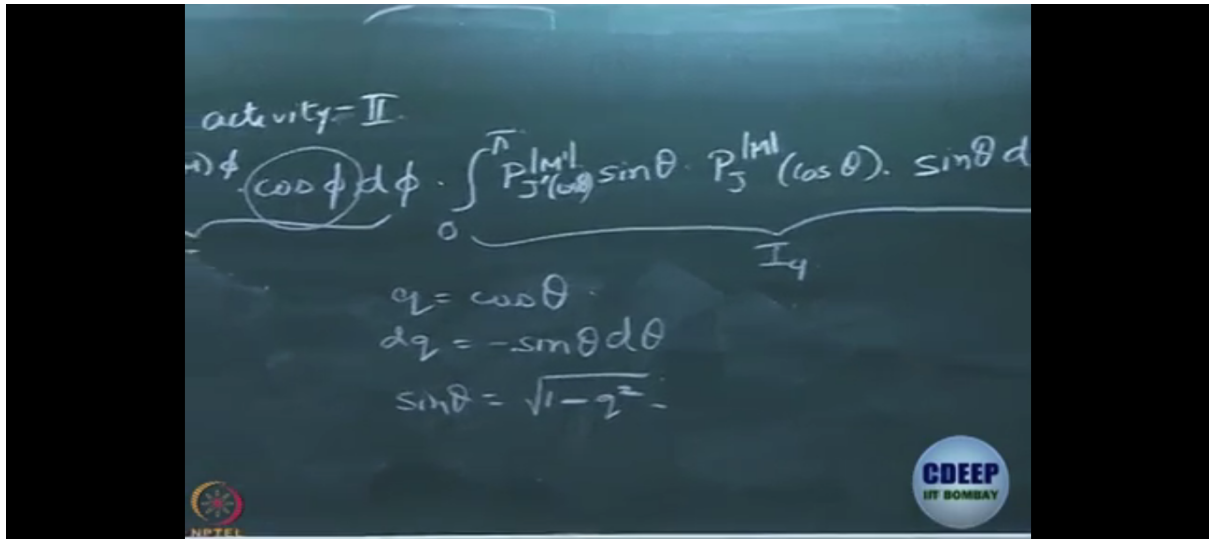 activity = II
M) φ cos φ dφ · ∫₀^π P_J'^|M'| (cosθ) sinθ · P_J^|M| (cos θ) · sinθ d
I₄
q = cos θ
dq = -sinθ dθ
sinθ = √1 - q²
CDEEP
IIT BOMBAY
NPTEL